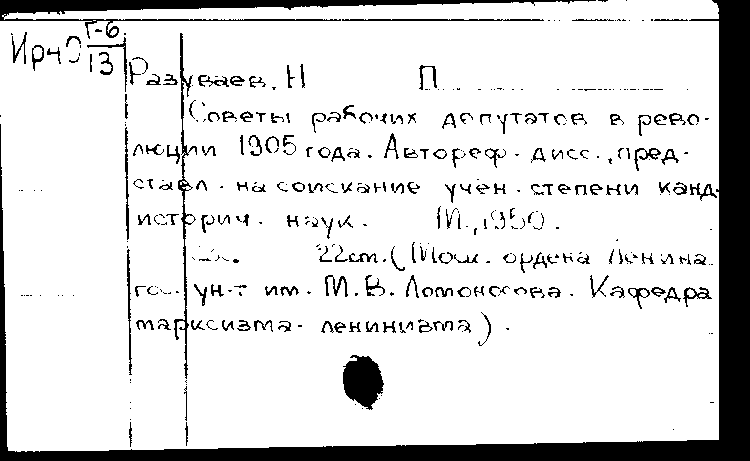 Г-6
ИрчО 13
Разуваев, Н П
Советы рабочих депутатов в рево-
люции 1905 года. Автореф. дисс., пред-
ставл. на соискание учен. степени канд.
историч. наук. М., 1950.
22 см. (Моск. ордена Ленина
гос. ун-т им. М.В. Ломоносова. Кафедра
марксизма-ленинизма).